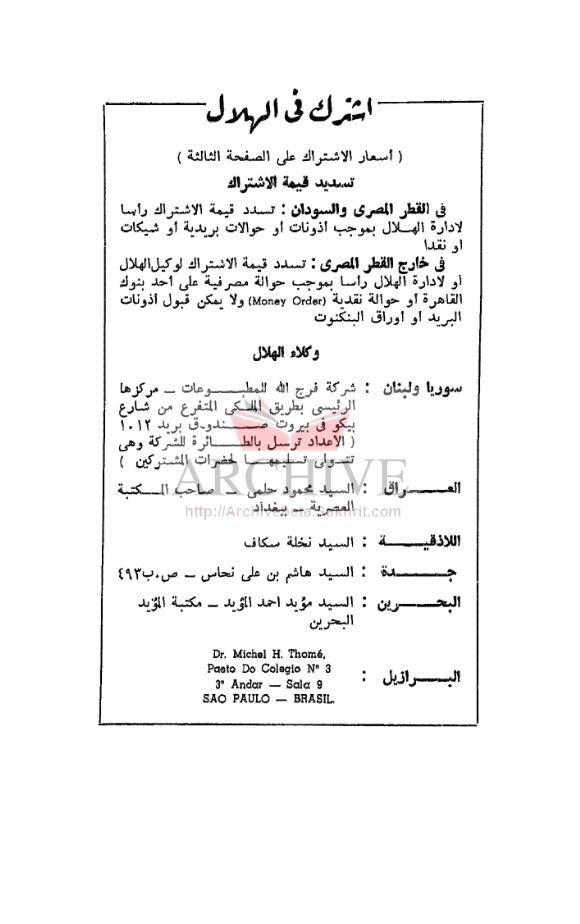 اشترك في الهلال
( أسعار الاشتراك على الصفحة الثالثة )
تسديد قيمة الاشتراك
في القطر المصرى والسودان : تسدد قيمة الاشتراك رأسا
لادارة الهلال بموجب أذونات أو حوالات بريدية أو شيكات
أو نقدا
فى خارج القطر المصرى : تسدد قيمة الاشتراك لوكيل الهلال
أو لادارة الهلال رأسا بموجب حوالة مصرفية على أحد بنوك
القاهرة أو حوالة نقدية (Money Order) ولا يمكن قبول أذونات
البريد أو أوراق البنكنوت
وكلاء الهلال
سوريا ولبنان : شركة فرج الله للمطبوعات ــ مركزها
الرئيسى بطريق الملكى المتفرع من شارع
بيكو فى بيروت صندوق بريد ١٠١٢
( الأعداد ترسل بالطائرة للشركة وهى
تتولى تسليمها لحضرات المشتركين )
العراق : السيد محمود حلمى ــ صاحب المكتبة
العصرية ــ ببغداد
اللاذقية : السيد نخلة سكاف
جدة : السيد هاشم بن على نحاس ــ ص.ب ٤٩٣
البحرين : السيد مؤيد أحمد المؤيد ــ مكتبة المؤيد
البحرين
Dr. Michel H. Thomé,
Paeto Do Colegio N° 3
البرازيل :
3° Andar — Sala 9
SAO PAULO — BRASIL.
ARCHIVE
http://Archivebeta.Sakhrit.com